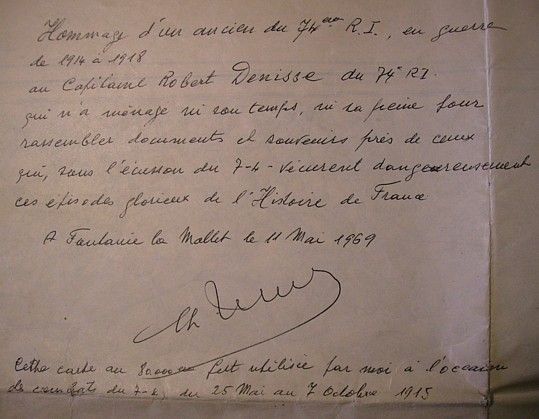 Hommage d'un ancien du 74ème R.I., en guerre
de 1914 à 1918
au Capitaine Robert Denisse du 74e RI.
qui n'a ménagé ni son temps, ni sa peine pour
rassembler documents et souvenirs près de ceux
qui, sous l'écusson du 7-4- vécurent dangereusement
ces épisodes glorieux de l'Histoire de France
A Fontaine la Mallet le 11 Mai 1969
Ch
Cette carte au fut utilisée par moi à l'occasion
de combats du 7-4, du 25 Mai au 7 Octobre 1915